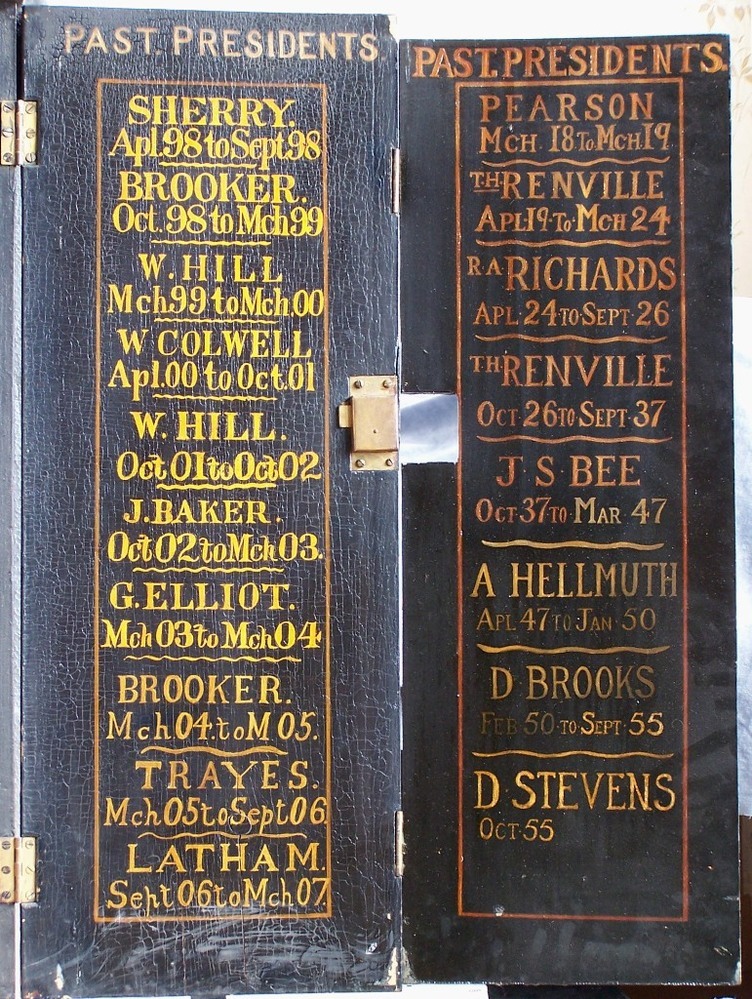 PAST PRESIDENTS
SHERRY.
Apl.98 to Sept.98
BROOKER.
Oct.98 to Mch99
W. HILL
Mch.99 to Mch.00
W COLWELL
Apl.00 to Oct.01
W. HILL.
Oct 01 to Oct 02
J. BAKER.
Oct 02 to Mch 03.
G. ELLIOT.
Mch 03 to Mch 04
BROOKER.
Mch 04. to M 05.
TRAYES.
Mch 05 to Sept 06
LATHAM.
Seht 06 to Mch 07
PAST. PRESIDENTS.
PEARSON
MCH 18. TO. MCH. 19
TH RENVILLE
APL 19 · TO · MCH 24
R.A RICHARDS
APL 24 TO · SEPT · 26
TH RENVILLE
OCT 26 TO SEPT · 37
J S BEE
OCT · 37 TO · MAR 47
A HELLMUTH
APL 47 TO JAN · 50
D BROOKS
FEB 50 · TO · SEPT · 55
D · STEVENS
OCT · 55